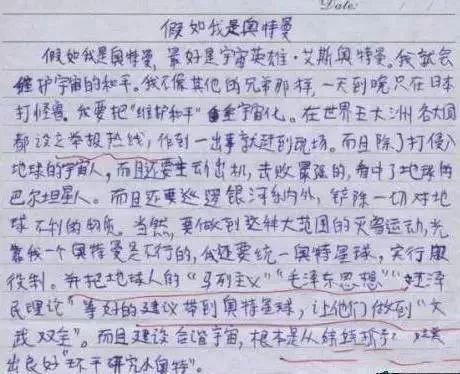 Date:
假如我是奥特曼
假如我是奥特曼,最好是宇宙英雄·艾斯奥特曼。我就会
维护宇宙的和平。我不像其他的兄弟那样,一天到晚只在日本
打怪兽。我要把“维护和平”全宇宙化。在世界五大洲各大国
都设立举报热线,做到一出事就赶到现场。而且除了打侵入
地球的宇宙人,而且还要主动出机,击败最强的,看中了地球的
巴尔坦星人。而且还要巡逻银河系内外,铲除一切对地
球不利的物质。当然,要做到这种大范围的灭害运动,光
靠我一个奥特曼是不行的,我还要统一奥特星球,实行服
役制。并把地球人的“马列主义”“毛泽东思想”“
民理论”等好的建议带到奥特星球,让他们做到“文
武双全”。而且建设合谐宇宙,根本是从娃娃抓
出良好“环平研究小奥特”。